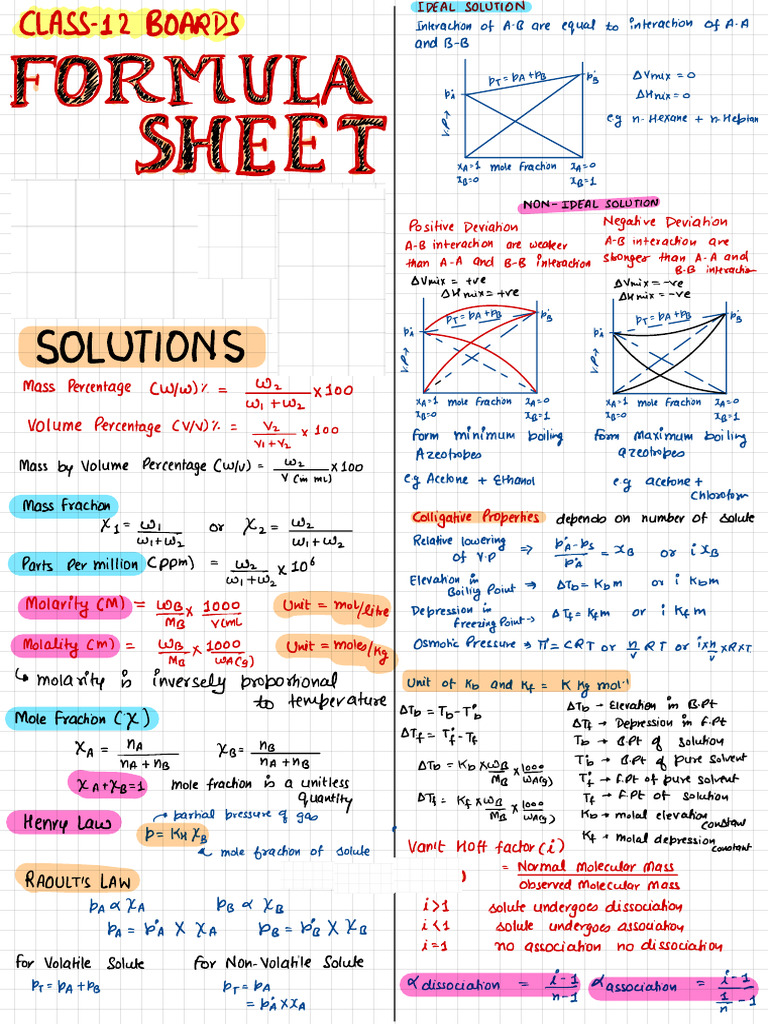 CLASS-12 BOARDS
FORMULA
SHEET
SOLUTIONS
Mass Percentage (w/w)% = w₂/(w₁+w₂) × 100
Volume Percentage (V/V)% = V₂/(V₁+V₂) × 100
Mass by Volume Percentage (w/v) = w₂/(V (in mL)) × 100
Mass Fraction
χ₁ = w₁/(w₁+w₂) or χ₂ = w₂/(w₁+w₂)
Parts Per million (ppm) = w₂/(w₁+w₂) × 10⁶
Molarity (M) = wB/MB × 1000/V(mL) Unit = mol/litre
Molality (m) = wB/MB × 1000/wA(g) Unit = moles/kg
↳ molarity is inversely proportional
to temperature
Mole Fraction (χ)
χA = nA/(nA+nB) χB = nB/(nA+nB)
χA+χB=1 mole fraction is a unitless
quantity
Henry Law → partial pressure of gas
p = KH χB
→ mole fraction of solute
RAOULT'S LAW
pA ∝ χA pB ∝ χB
pA = p°A × χA pB = p°B × χB
for Volatile Solute for Non-Volatile Solute
pT = pA + pB pT = pA
= p°A × χA
IDEAL SOLUTION
Interaction of A-B are equal to interaction of A-A
and B-B
pT = pA + pB p°B ΔVmix = 0
p°A ΔHmix = 0
V.P→ eg n-Hexane + n-Heptan
xA=1 mole fraction xA=0
xB=0 xB=1
NON-IDEAL SOLUTION
Positive Deviation
A-B interaction are weaker
than A-A and B-B interaction
ΔVmix = +ve
ΔHmix = +ve
pT = pA + pB
p°A p°B
V.P→
xA=1 mole fraction xA=0
xB=0 xB=1
form minimum boiling
Azeotropes
e.g Acetone + Ethanol
Negative Deviation
A-B interaction are
stronger than A-A and
B-B interaction
ΔVmix = -ve
ΔHmix = -ve
pT = pA + pB
p°A p°B
V.P→
xA=1 mole fraction xA=0
xB=0 xB=1
form maximum boiling
azeotropes
e.g acetone +
chloroform
Colligative Properties depends on number of solute
Relative lowering
of V.P ⇒ (p°A-ps)/p°A = xB or i xB
Elevation in
Boiling Point → ΔTb = Kb m or i Kb m
Depression in
freezing Point → ΔTf = Kf m or i Kf m
Osmotic Pressure → π = CRT or n/v RT or i×n/v ×R×T
Unit of Kb and Kf = K Kg mol⁻¹
ΔTb = Tb-T°b
ΔTf = T°f-Tf
ΔTb = Kb × wB/MB × 1000/wA(g)
ΔTf = Kf × wB/MB × 1000/wA(g)
ΔTb → Elevation in B.Pt
ΔTf → Depression in F.Pt
Tb → B.Pt of solution
T°b → B.Pt of pure solvent
T°f → F.Pt of pure solvent
Tf → F.Pt of solution
Kb → molal elevation
constant
Kf → molal depression
constant
Vanit Hoff factor (i)
)
= Normal Molecular Mass
Observed Molecular Mass
i>1 solute undergoes dissociation
i<1 solute undergoes association
i=1 no association no dissociation
α dissociation = (i-1)/(n-1) α association = (i-1)/(1/n - 1)